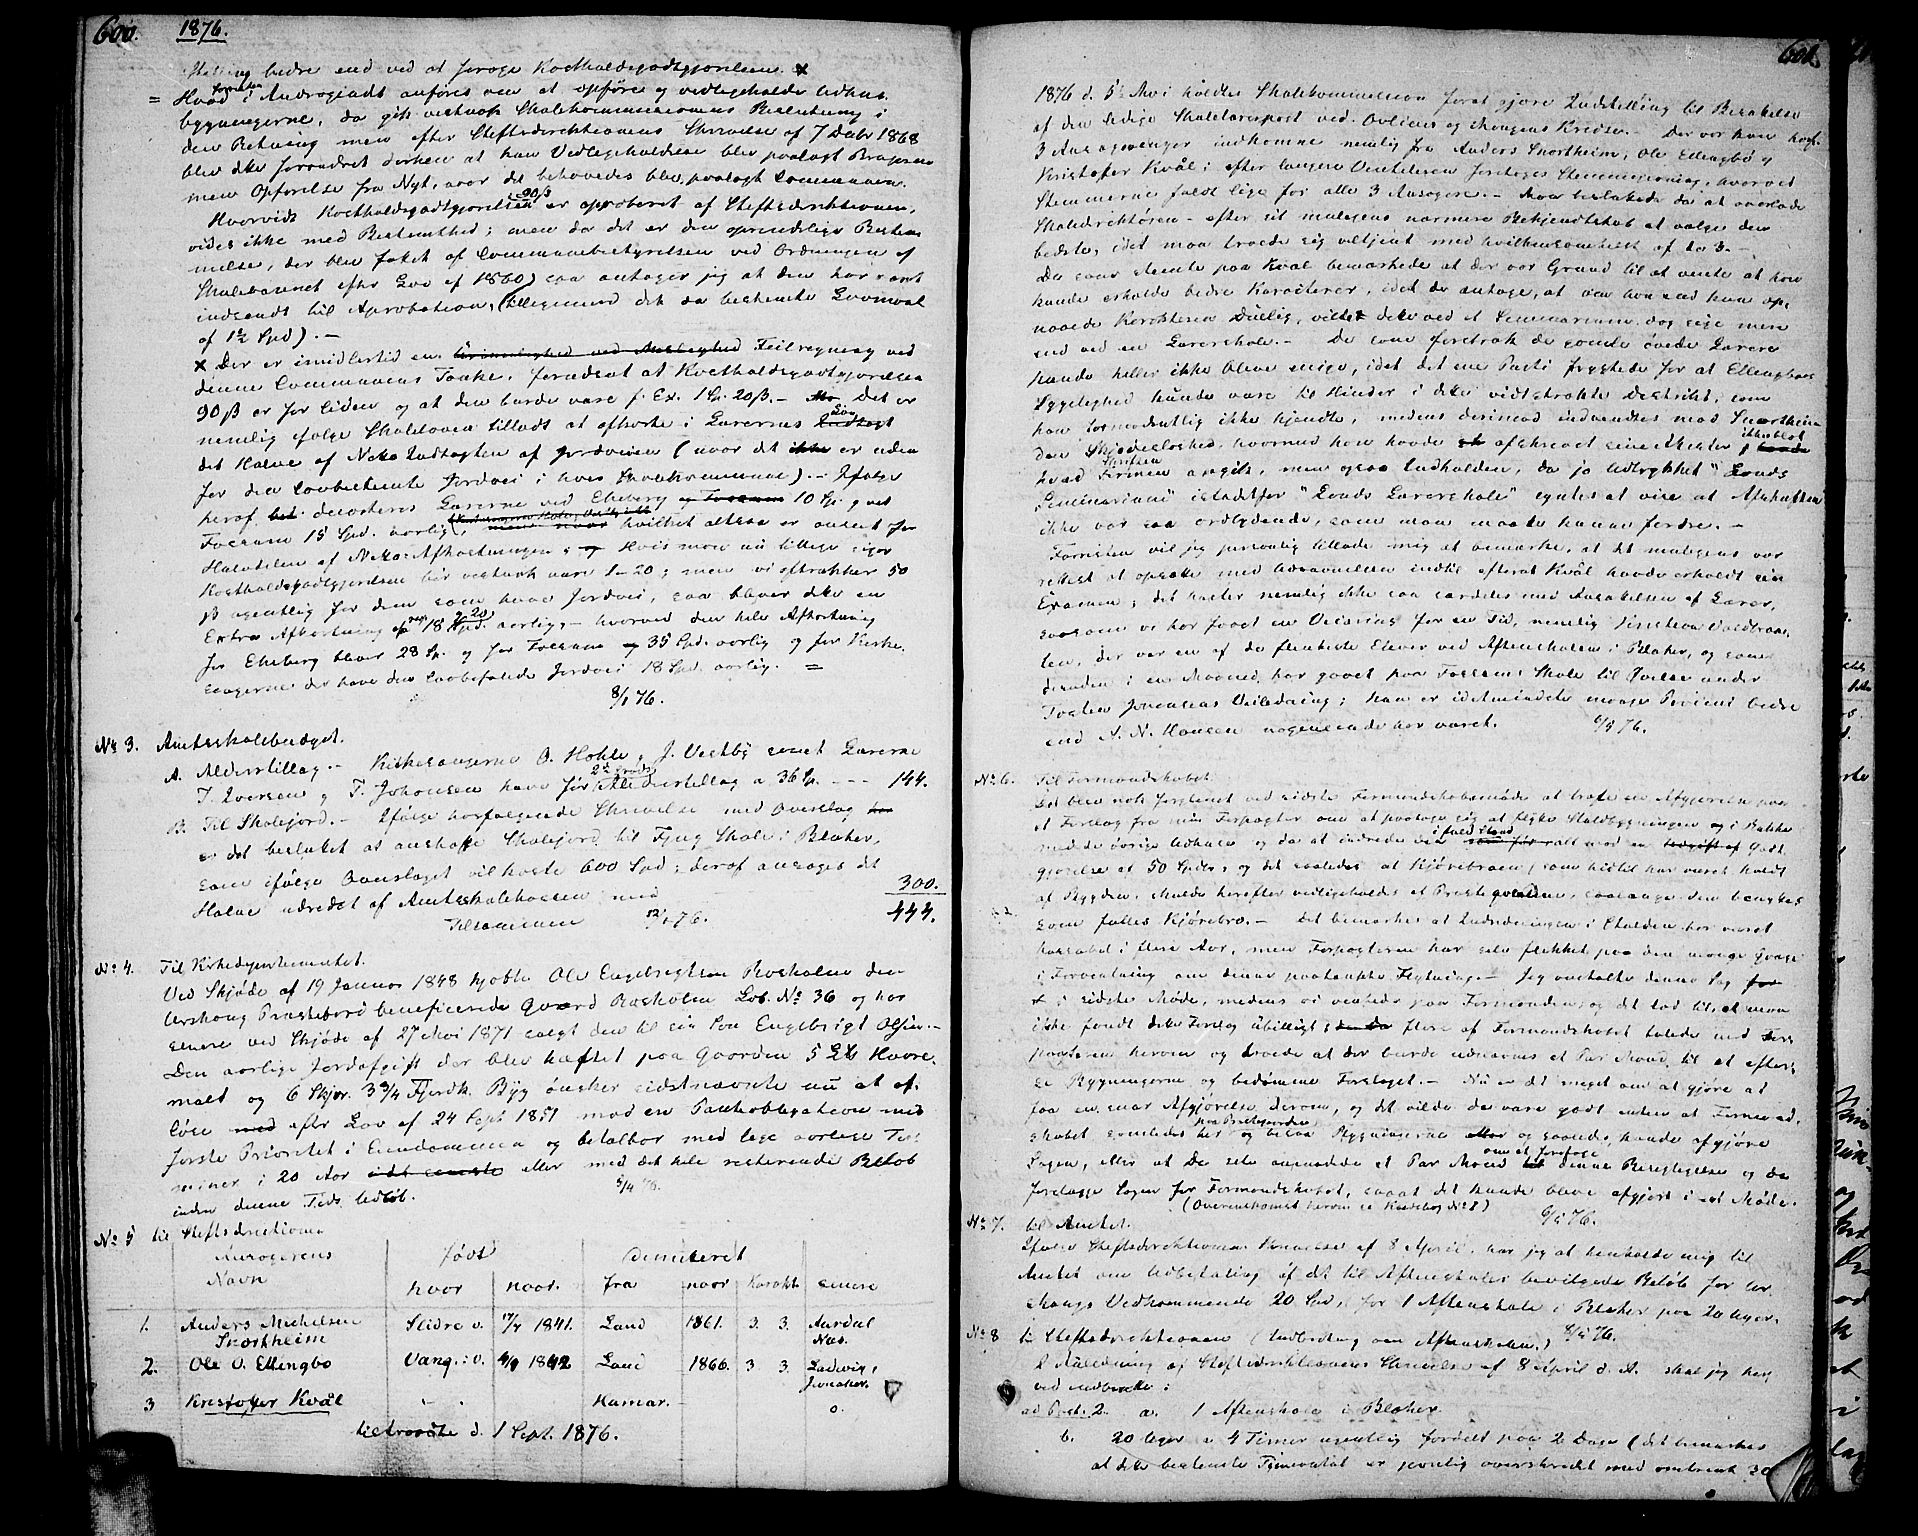 600. 1876.
Stilling bedre end ved at forøge Kostholdsgodtgjørelsen. x
= Hvad forresten i Andragiadt anføres om at opføre og vedligeholde Udhus
bygningerne, da gik vistnok Skolekommissionens Beslutning i
den Retning men efter Stiftsdirektionens Skrivelse af 7 Decbr 1868
blev dette forandret derhen at kun Vedligeholdelse blev paalagt Brugerne
men Opførelse fra Nyt, naar det behøvedes blev paalagt Communen.
Hvorvidt Kostholdsgodtgjørelsen 90 β er approberet af Stiftsdirektionen,
vides ikke med Bestemthed; men da det er den oprindelige Bestem
melse, der blev fattet af Communebestyrelsen ved Ordningen af
Skolevæsenet efter Lov af 1860, saa antager jeg at den har været
indsendt til Aprobation, (alligemed det da bestemte Lønsmaal
af 1½ Spd). –
x Der er imidlertid en Feilregning ved
denne Communens Tanke, forudsat at Kostholdsgodtgjørelsen
90 β er for liden og at den burde være f. Ex. 1 Sp. 20 β. – Det er
nemlig ifølge Skoleloven tilladt at afkorte i Lærernes Løn
det Halve af Netto Indtægten af Jordveien (naar det ikke er uden
for den lovbestemte Jordvei i hver Skolekommune). – Ifølge
heraf decorteres Lærerne ved Ekeberg og Fossum 10 Sp. og ved
Fossum 15 Spd. aarlig, hvilket altsaa er anseet for
Halvdelen af Netto-Afkastningen; og Hvis man nu tillige siger
Kostholdsgodtgjørelsen bør vistnok være 1–20; men vi fratrækker 50
β ugentlig for dem som have Jordvei, saa bliver dette en
Extra Afkortning af 18 Spd. aarlig, – hvorved den hele Afkortning
for Ekeberg bliver 28 Sp. og for Fossum 35 Spd. aarlig og for Kirke
sangerne der have den lovbefalede Jordvei 18 Spd. aarlig. =
8/1 76.
No 3. Amtsskolebudget.
A. Alderstillæg. – Kirkesangerne O. Hohle, J. Vestby samt Lærerne
T. Iversen og T. Johansen have for 2det Grads Alderstillæg a 36 Sp. – – – 144.
B. Til Skolejord. – Ifølge hosfølgende Skrivelse med Overslag
er det besluttet at anskaffe Skolejord til Fjug Skole i Blaker,
som ifølge Overslaget vil koste 600 Spd; deraf ansøges det
Halve udredet af Amtsskolekassen med 300.
Tilsammen 12/1 76. 444.
No 4. Til Kirkedepartementet.
Ved Skjøde af 19 Januar 1848 kjøbte Ole Engebrigtsen Rosholm den
Urskoug Præstebord beneficerede Gaard Rosholm Løb. No 36 og har
senere ved Skjøde af 27 Mai 1871 solgt den til sin Søn Engebrigt Olsen. –
Den aarlige Jordafgift der blev hæftet paa Gaarden 5 Havre
malt og 6 Skjpr. 3¾ Fjerdk. Byg ønsker sidstnævnte nu at af
løse med efter Lov af 24 Sept 1851 mod en Pantobligation med
første Prioritet i Eiendommen og betalbar med lige aarlige Ter
miner i 20 Aar eller med det hele resterende Beløb
inden denne Tids Udløb. 5/4 76.
No 5 til Stiftsdirektionen
Ansøgerens Navn | født hvor | naar. | Dimitteret fra | naar | Karakt. | senere
1. Anders Michelsen Snortheim | Slidre v. | 17/7 1841. | Land | 1861. | 3. 3. | Aardal Næs.
2. Ole O. Ellingbø | Vang. v. | 4/9 1842 | Land | 1866. | 3 3 | Ludvig, Jevnaker.
3 Kristoffer Kvål | – | – | Hamar. | – | | o.
tiltraadte d. 1 Sept. 1876.
601.
1876 d. 5te Mai holdtes Skolekommission forat gjøre Indstilling til Besættelse
af den ledige Skolelærerpost ved Ovliens og Mangens Kredse. – Der var kun
3 Ansøgninger indkomne nemlig fra Anders Snortheim, Ole Ellingbø og
Kristofer Kvål; efter længere Ventilation foretoges Stemmegivning, hvorved
Stemmerne faldt lige for alle 3 Ansøgere. – Man besluttede da at overlade
Skoledirektøren – efter sit muligens nærmere Bekjendtskab at vælge den
bedste, idet man troede sig veltjent med hvilkensomhelst af de 3. –
De som stemte paa Kvål bemærkede at der var Grund til at vente at han
kunde erholde bedre Karakterer, idet de antoge, at om han end kun op
naaede Karakteren Duelig, vilde dette ved et Seminarium dog sige mere
end ved en Lærerskole. – De som foretrak de gamle øvede Lærere
kunde heller ikke blive enige, idet det ene Parti frygtede for at Ellingbøs
Sygelighed kunde være til Hinder i dette vidtstrakte Distrikt, som
han formodentlig ikke kjendte, medens derimod indvendtes mod Snortheim
den Skjødesløshed, hvormed han havde afskrevet sine Attester, ikkeblot
hvad Skriften Formen angik, men ogsaa Indholdet, da jo Udtrykket "Lands
Seminarium" istedetfor "Lands Lærerskole" syntes at vise at Afskriften
ikke var saa ordlydende, som man maatte kunne fordre. –
Forresten vil jeg personlig tillade mig at bemærke, at det muligens var
rettest at opsætte med Udnævnelsen indtil efterat Kvål havde erholdt sin
Examen; det haster nemlig ikke saa særdeles med Ansættelsen af Lærer,
saasom vi har faaet en Vicarius for en Tid, nemlig Kristian Voldbraa
ten, der var en af de flinkeste Elever ved Aftenskolen i Blaker, og som
desuden i en Maaned har gaaet paa Fossums Skole til Øvelse under
Torsten Johansens Veiledning; han er idetmindste mange Procent bedre
end N. N. Hansen nogensinde har været. 6/5 76.
No 6. Til Formandskabet.
Det blev nok forglemt ved sidste Formandskabsmøde at træffe en Afgjørelse paa
et Forslag fra min Forpagter om at paatage sig at flytte Staldbygningen og i Bakke
med de øvrige Udhuse og da at indrede den i fuld Stand mod en Godt
gjørelse af 50 Spdlr. og det saaledes at Kjørebroen, som hidtil har været holdt
af Bygden, skulde herefter vedligeholdes af Præstegaarden, saalænge den benyttes
som fælles Kjørebro. – Det bemærkes at Indredningen i Stalden har været
kassabel i flere Aar, men Forpagteren har selv flikket paa den mange Gange
i Forventning om denne paatænkte Flytning. – Jeg omtalte denne Sag
i sidste Møde, medens vi ventede paa Formanden, og det lod til, at man
ikke fandt dette Forslag ubilligt; flere af Formandskabet talede med For
pagteren herom og troede at der burde udnævnes et Par Mænd til at efter
se Bygningerne og bedømme Forslaget. – Nu er det meget om at gjøre at
faa en snar Afgjørelse derom, og det vilde da være godt enten at Formand
skabet samledes her paa Præstegaarden og besaa Bygningerne og saaledes kunde afgjøre
Sagen, eller at De selv anmodede et Par Mænd om at foretage denne Besigtigelse og da
forelægge Sagen for Formandskabet, saaat det kunde blive afgjort i et Møde.
(Overenskomst herom se Kaldsbog No 8) 6/5 76.
No 7. til Amtet.
Ifølge Stiftsdirektionens Skrivelse af 8 April, har jeg at henholde mig til
Amtet om Udbetaling af det til Aftenskoler bevilgede Beløb for Ur
skougs Vedkommende 20 Spd. for 1 Aftenskole i Blaker paa 20 Uger.
No 8 til Stiftsdirektionen (Indbretning om Aftenskolen.) 6/5 76.
I Anledning af Stiftsdirektionens Skrivelse af 8 April d. A. skal jeg her
ved indberette:
ad Post. 2. a. 1 Aftenskole i Blaker.
b. 20 Uger a 4 Timer ugentlig fordelt paa 2 Dage (det bemærkes
at dette bestemte Timeantal er jevnlig overskredet med omtrent 30